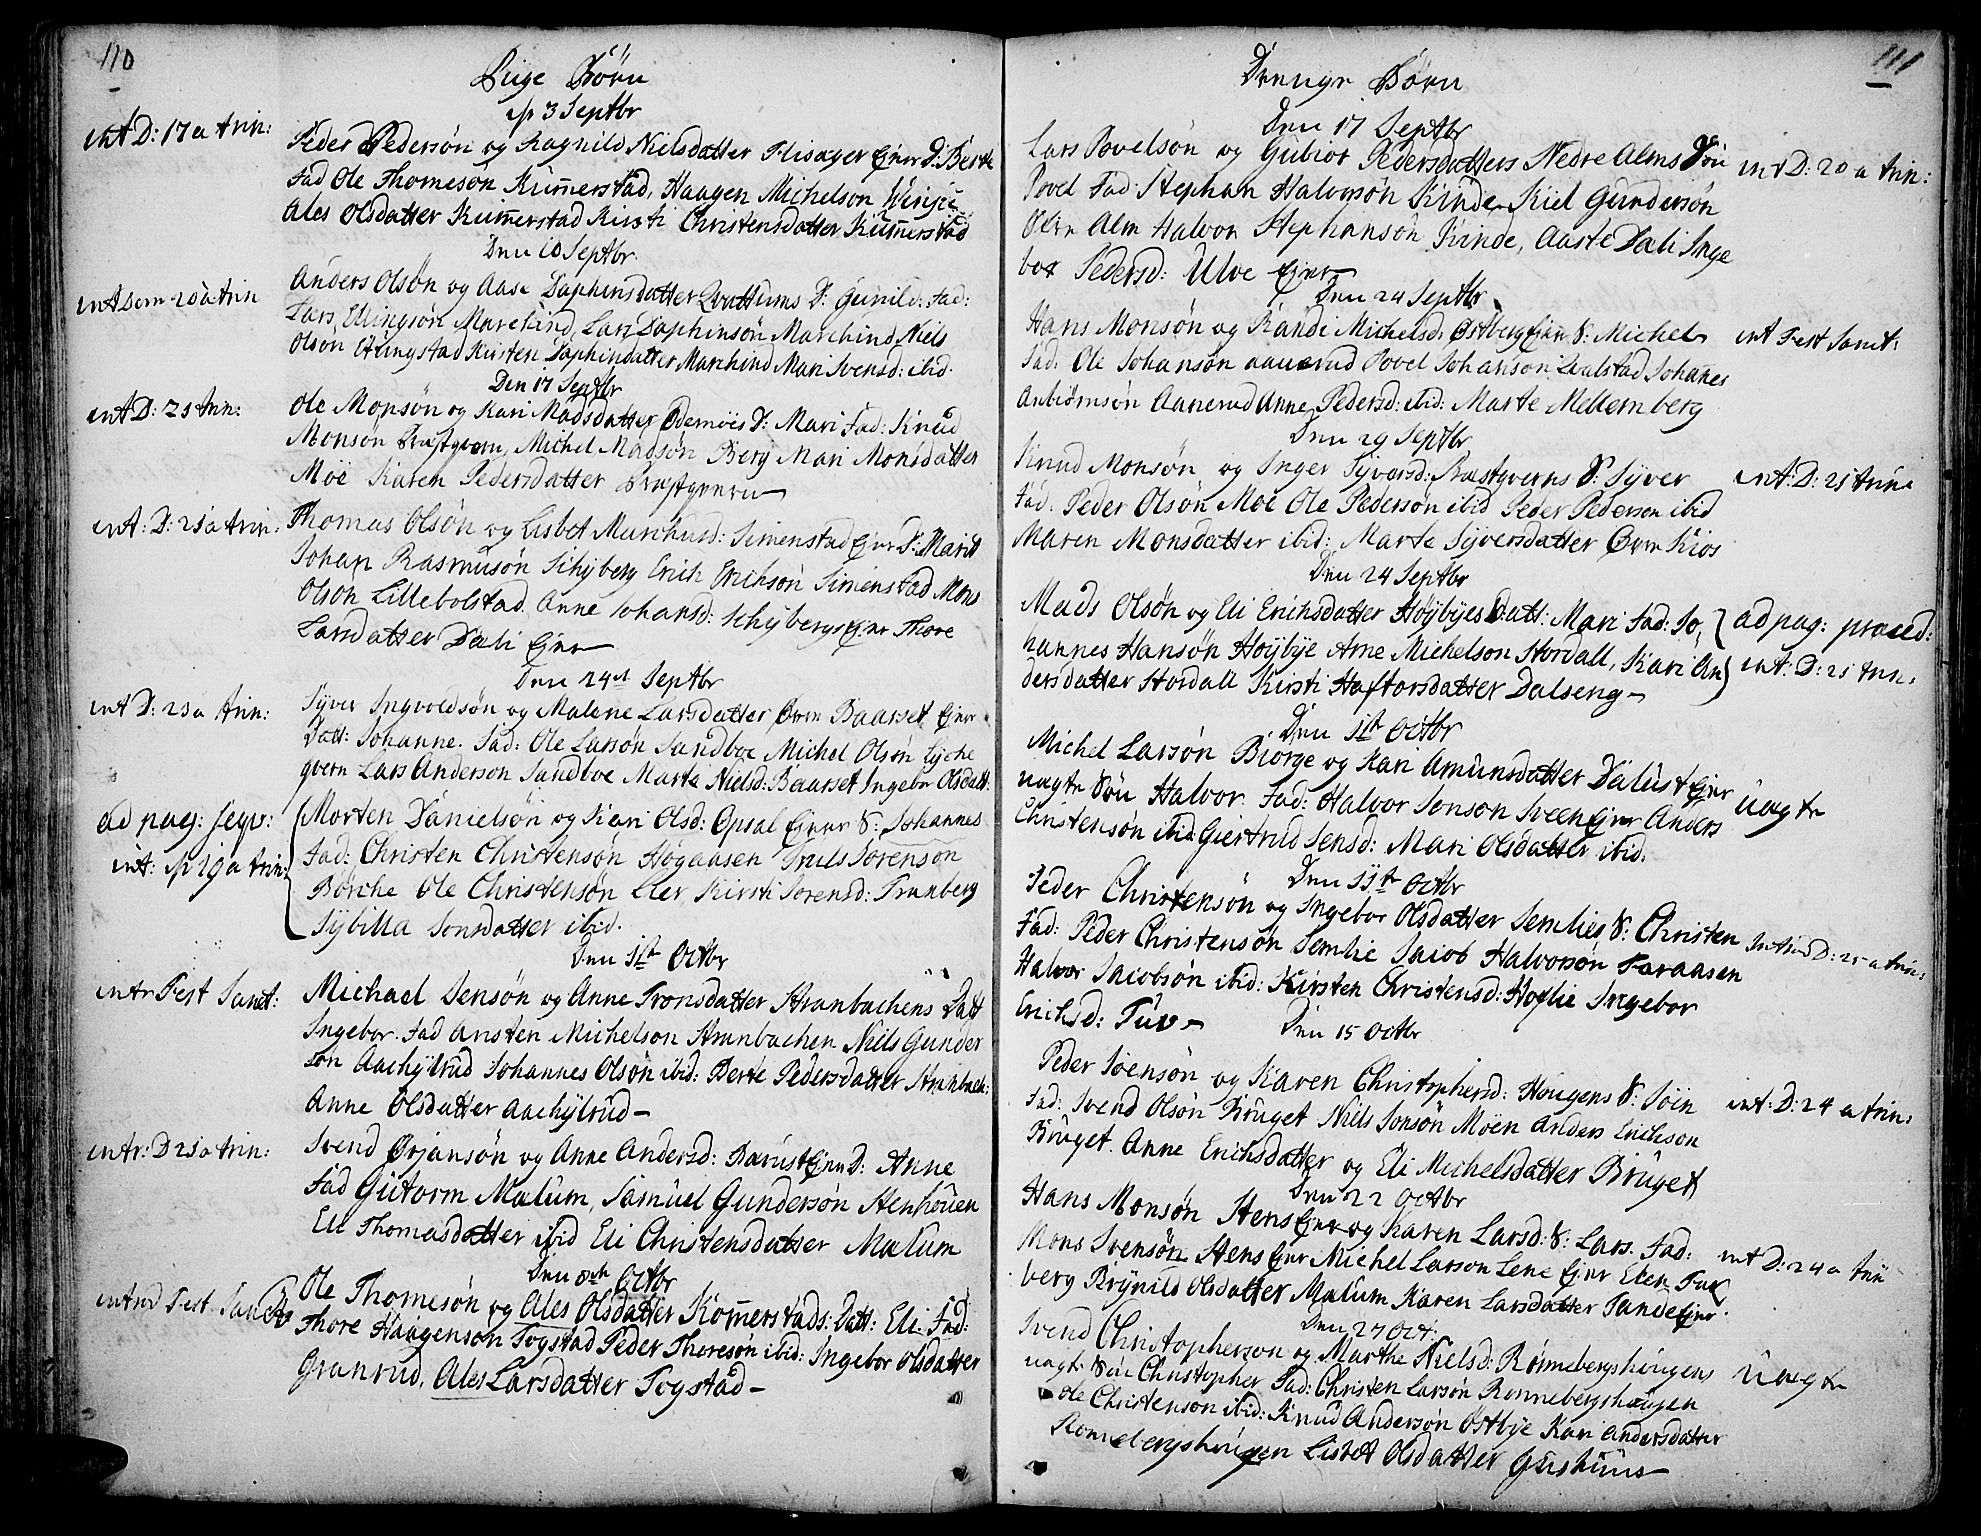 110
Pige Børn
p 3 Septbr
int D: 17 a trin:
Peder Pedersön og Ragnild Nielsdatter Flisager Ejner D: Berte
Fad Ole Thomeson Kummerstad, Haagen Michelson
Ales Olsdatter Kummerstad Kirsti Christensdatter Kummerstad
Den 10 Septbr
int Dom 20 a trin
Anders Olsøn og Aase Daphinsdatter Qvattums D: Gunild: Fad:
Lars Ellingsøn Marchind, Lars Daphinsøn Marchind, Niels
Olsøn Ellingstad Kirsten Daphindatter Marchind Mari Svensd: ibid.
Den 17 Septbr
int D: 21 trin:
Ole Monsøn og Kari Madsdatter Ødemöis D: Mari Fad: Knud
Monsøn Bræstgvern, Michel Madsøn Berg Mari Monsdatter
Moe Karen Pedersdatter Bræstgvern
int: D: 21 a trin:
Thomas Olsøn og Lisbet Marchusd: Simenstad Ejner D: Marit
Johan Rasmusøn Schyberg Erich Erichsøn Simenstad Mons
Olsøn Lillebolstad Anne Johansd: Schybergs Ejner Thore
Larsdatter Dæli Ejner
Den 24 Septbr
int D: 23 a trin:
Syver Ingvoldsøn og Malene Larsdatter Øvre Baarset Ejner
Datt: Johanne. Fad: Ole Larsøn Sandboe Michel Olsøn Lyche
gvern Lars Anderson Sandboe Marte Nielsd: Baarset Ingebor Olsdatt:
ad pag: seqv:
int: p 19 a trin:
Morten Danielsøn og Kari Olsd: Opsal Ejner S: Johannes
Fad: Christen Christensøn Høgaasen Truls Sørensøn
Børche Ole Christensøn Eler Kirsti Sørensd: Tranberg
Sybilla Jonsdatter ibid.
Den 1ste Octbr
intr Fest Sanct:
Michael Jensøn og Anne Tronsdatter Stranbachens Datt
Ingebor. Fad Aristen Michelson Stranbachen Niels Gunder
søn Aachylrud Johannes Olsøn ibid: Berte Pedersdatter Stranbach:
Anne Olsdatter Aachylrud
intr: D 21 a trin:
Svend Ørjansøn og Anne Andersd: Bærust Ejner D: Anne
Fad Gutorm Malum, Samuel Gundersøn Stenhouen
Eli Thomasdatter ibid Eli Christensdatter Malum
Den 8de Octbr
intrd Fest. Sanct
Ole Thomesøn og Ales Olsdatter Kommerstads: Datt: Eli. Fad:
Thore Haagensøn Togstad Peder Thoresøn ibid: Ingebor Olsdatter
Granrud, Ales Larsdatter Togstad
111
Drenge Børn
Den 17 Septbr
Lars Povelsøn og Gubior Pedersdatters Nedre Alms Søn
int D: 20 a trin:
Povel Fad: Stephan Halvorsøn Kinde Kiel Gundersøn
Øvre Alm Halvor Stephansøn Kinde, Aaste Dæli Inge
bor Pedersd: Ulve Ejner
Den 24 Septbr
Hans Monsøn og Randi Michelsd: Østberg Ejner S: Michel
int Fest Sanct:
Fad: Ole Johansøn Aanerud Povel Johansøn Qvalstad Johanes
Anbiørnsøn Aanerud Anne Pedersd: ibid: Marte Mellemberg
Den 29 Septbr
Knud Monsøn og Inger Syversd: Bræstgverns S: Syver
int: D: 21 trin:
Fad: Peder Olsøn Moe Ole Pedersøn ibid Peder Pederson ibid
Maren Monsdatter ibid: Marte Syversdatter Øvre Kios
Den 24 Septbr
Mads Olsøn og Eli Erichsdatter Høybyes Datt: Mari Fad: Jo,
ad pag: præced:
hannes Hansøn Høybye Arne Michelson Stordall, Kari An
int: D: 21 trin:
dersdatter Stordall Kirsti Haftorsdatter Dalseng
Den 1ste Octbr
Michel Larsøn Biorge og Kari Amunsdatter Dalust Ejner
uægte Søn Halvor. Fad: Halvor Jonson Sveen Ejner Anders
uægte
Christensøn ibid Giertrud Jensd: Mari Olsdatter ibid.
Den 11te Octbr
Peder Christensøn og Ingebor Olsdatter Semlies S: Christen
Fad: Peder Christensøn Semlie Jacob Halvorsøn Faraasen
Intrd D: 21 a trin:
Halvor Jacobsøn ibid: Kirsten Christensd: Hoflie Ingebor
Erichsd: Tuv
Den 15 Octbr
Peder Joensøn og Karen Christophersd: Hougens S: Joen
int: D: 24 a trin:
Fad: Svend Olsøn Bruget Niels Jonsøn Moen Anders Erichson
Bruget. Anne Erichsdatter og Eli Michelsdatter Bruget
Den 22 Octbr
Hans Monsøn Stens Ejner og Karen Larsd: S: Lars. Fad:
int D: 24 a trin
Mons Svensøn Stens Ejner Michel Larson Lene Ejner Elen Fax
berg Brynild Olsdatter Malum Karen Larsdatter Tande Ejner.
Den 27 Oct:
Svend Christopherson og Marthe Nielsd: Rønnebergshougens
uægte Søn Christopher Fad: Christen Larsøn Ronnebergshougen
uægte
Ole Christenson ibid: Knud Andersøn Østbye Kari Andersdatter
Ronnebergshougen Lisbet Olsdatter